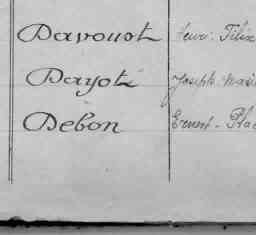 Davoust Henri Félix
Dayot Joseph Marie
Débon Ernest - Pla